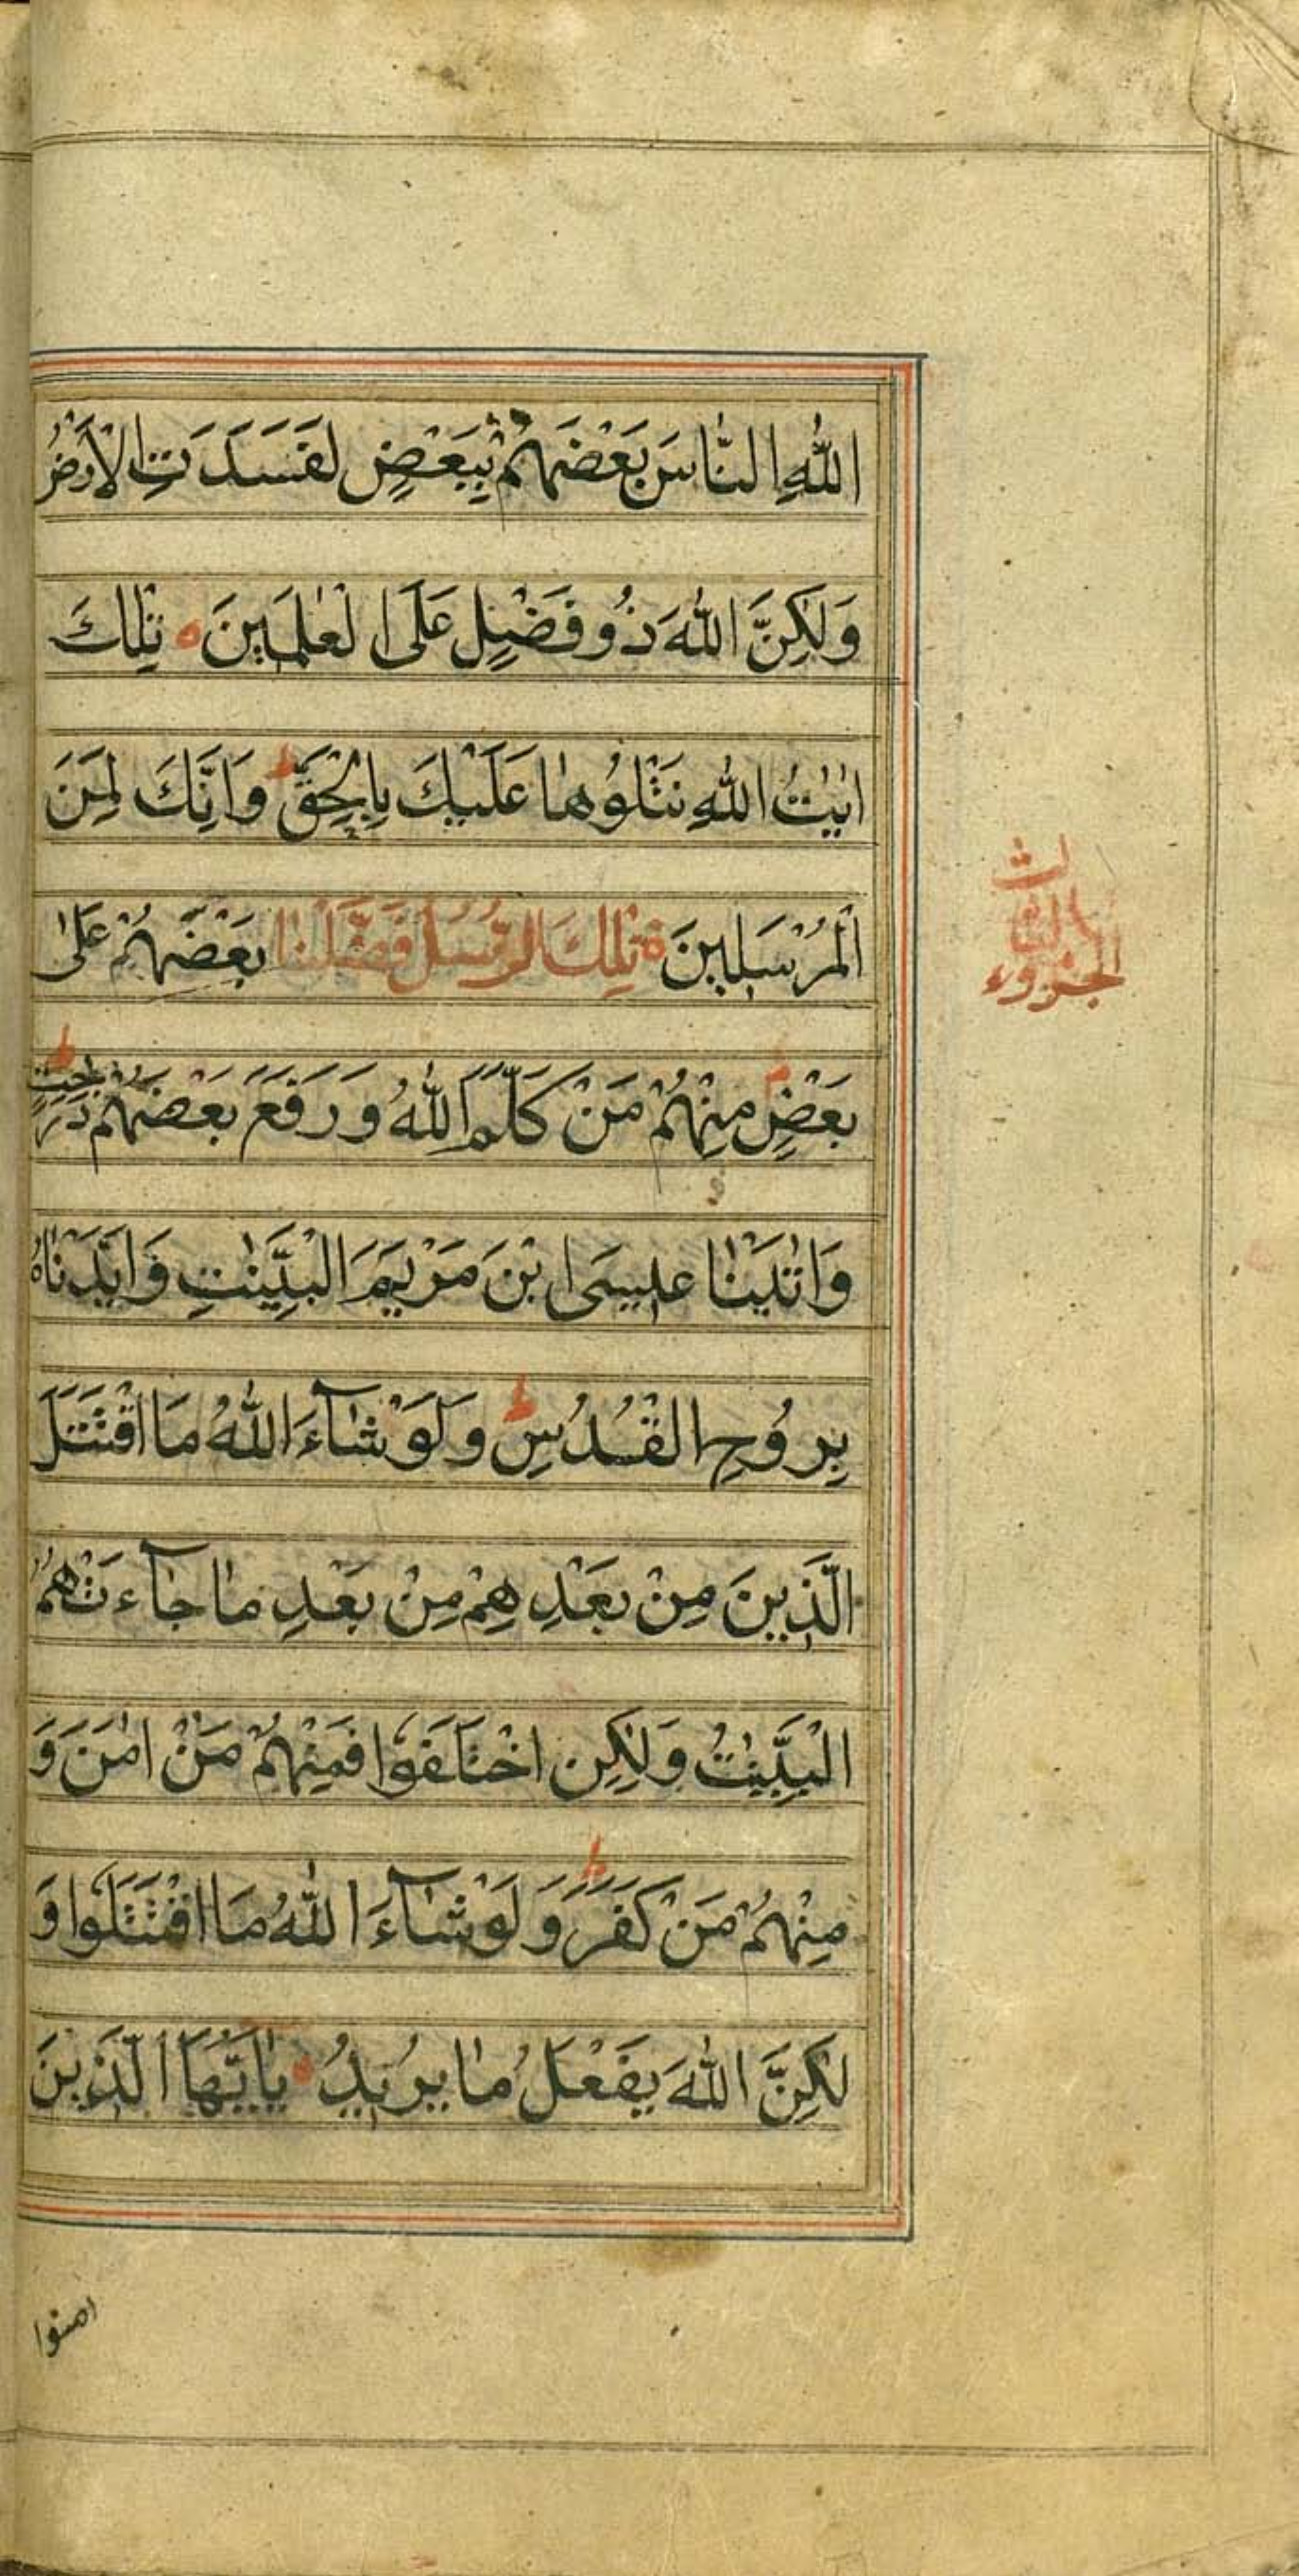 اللّٰهِ النَّاسَ بَعْضَهُمْ بِبَعْضٍ لَفَسَدَتِ الْاَرْضُ
وَلٰكِنَّ اللّٰهَ ذُو فَضْلٍ عَلَى الْعٰلَمِيْنَ ٥ تِلْكَ
اٰيٰتُ اللّٰهِ نَتْلُوْهَا عَلَيْكَ بِالْحَقِّ ط وَاِنَّكَ لَمِنَ
الْمُرْسَلِيْنَ ة تِلْكَ الرُّسُلُ فَضَّلْنَا بَعْضَهُمْ عَلٰى
بَعْضٍ مِنْهُمْ مَنْ كَلَّمَ اللّٰهُ وَرَفَعَ بَعْضَهُمْ دَرَجٰتٍ ط
وَاٰتَيْنَا عِيْسَى ابْنَ مَرْيَمَ الْبَيِّنٰتِ وَاَيَّدْنَاهُ
بِرُوْحِ الْقُدُسِ ط وَلَوْ شَآءَ اللّٰهُ مَا اقْتَتَلَ
الَّذِيْنَ مِنْ بَعْدِهِمْ مِنْ بَعْدِ مَا جَآءَتْهُمُ
الْبَيِّنٰتُ وَلٰكِنِ اخْتَلَفُوْا فَمِنْهُمْ مَنْ اٰمَنَ وَ
مِنْهُمْ مَنْ كَفَرَ ط وَلَوْ شَآءَ اللّٰهُ مَا اقْتَتَلُوْا وَ
لٰكِنَّ اللّٰهَ يَفْعَلُ مَا يُرِيْدُ ٥ يٰاَيُّهَا الَّذِيْنَ
امنوا
الجزوء
الثالث